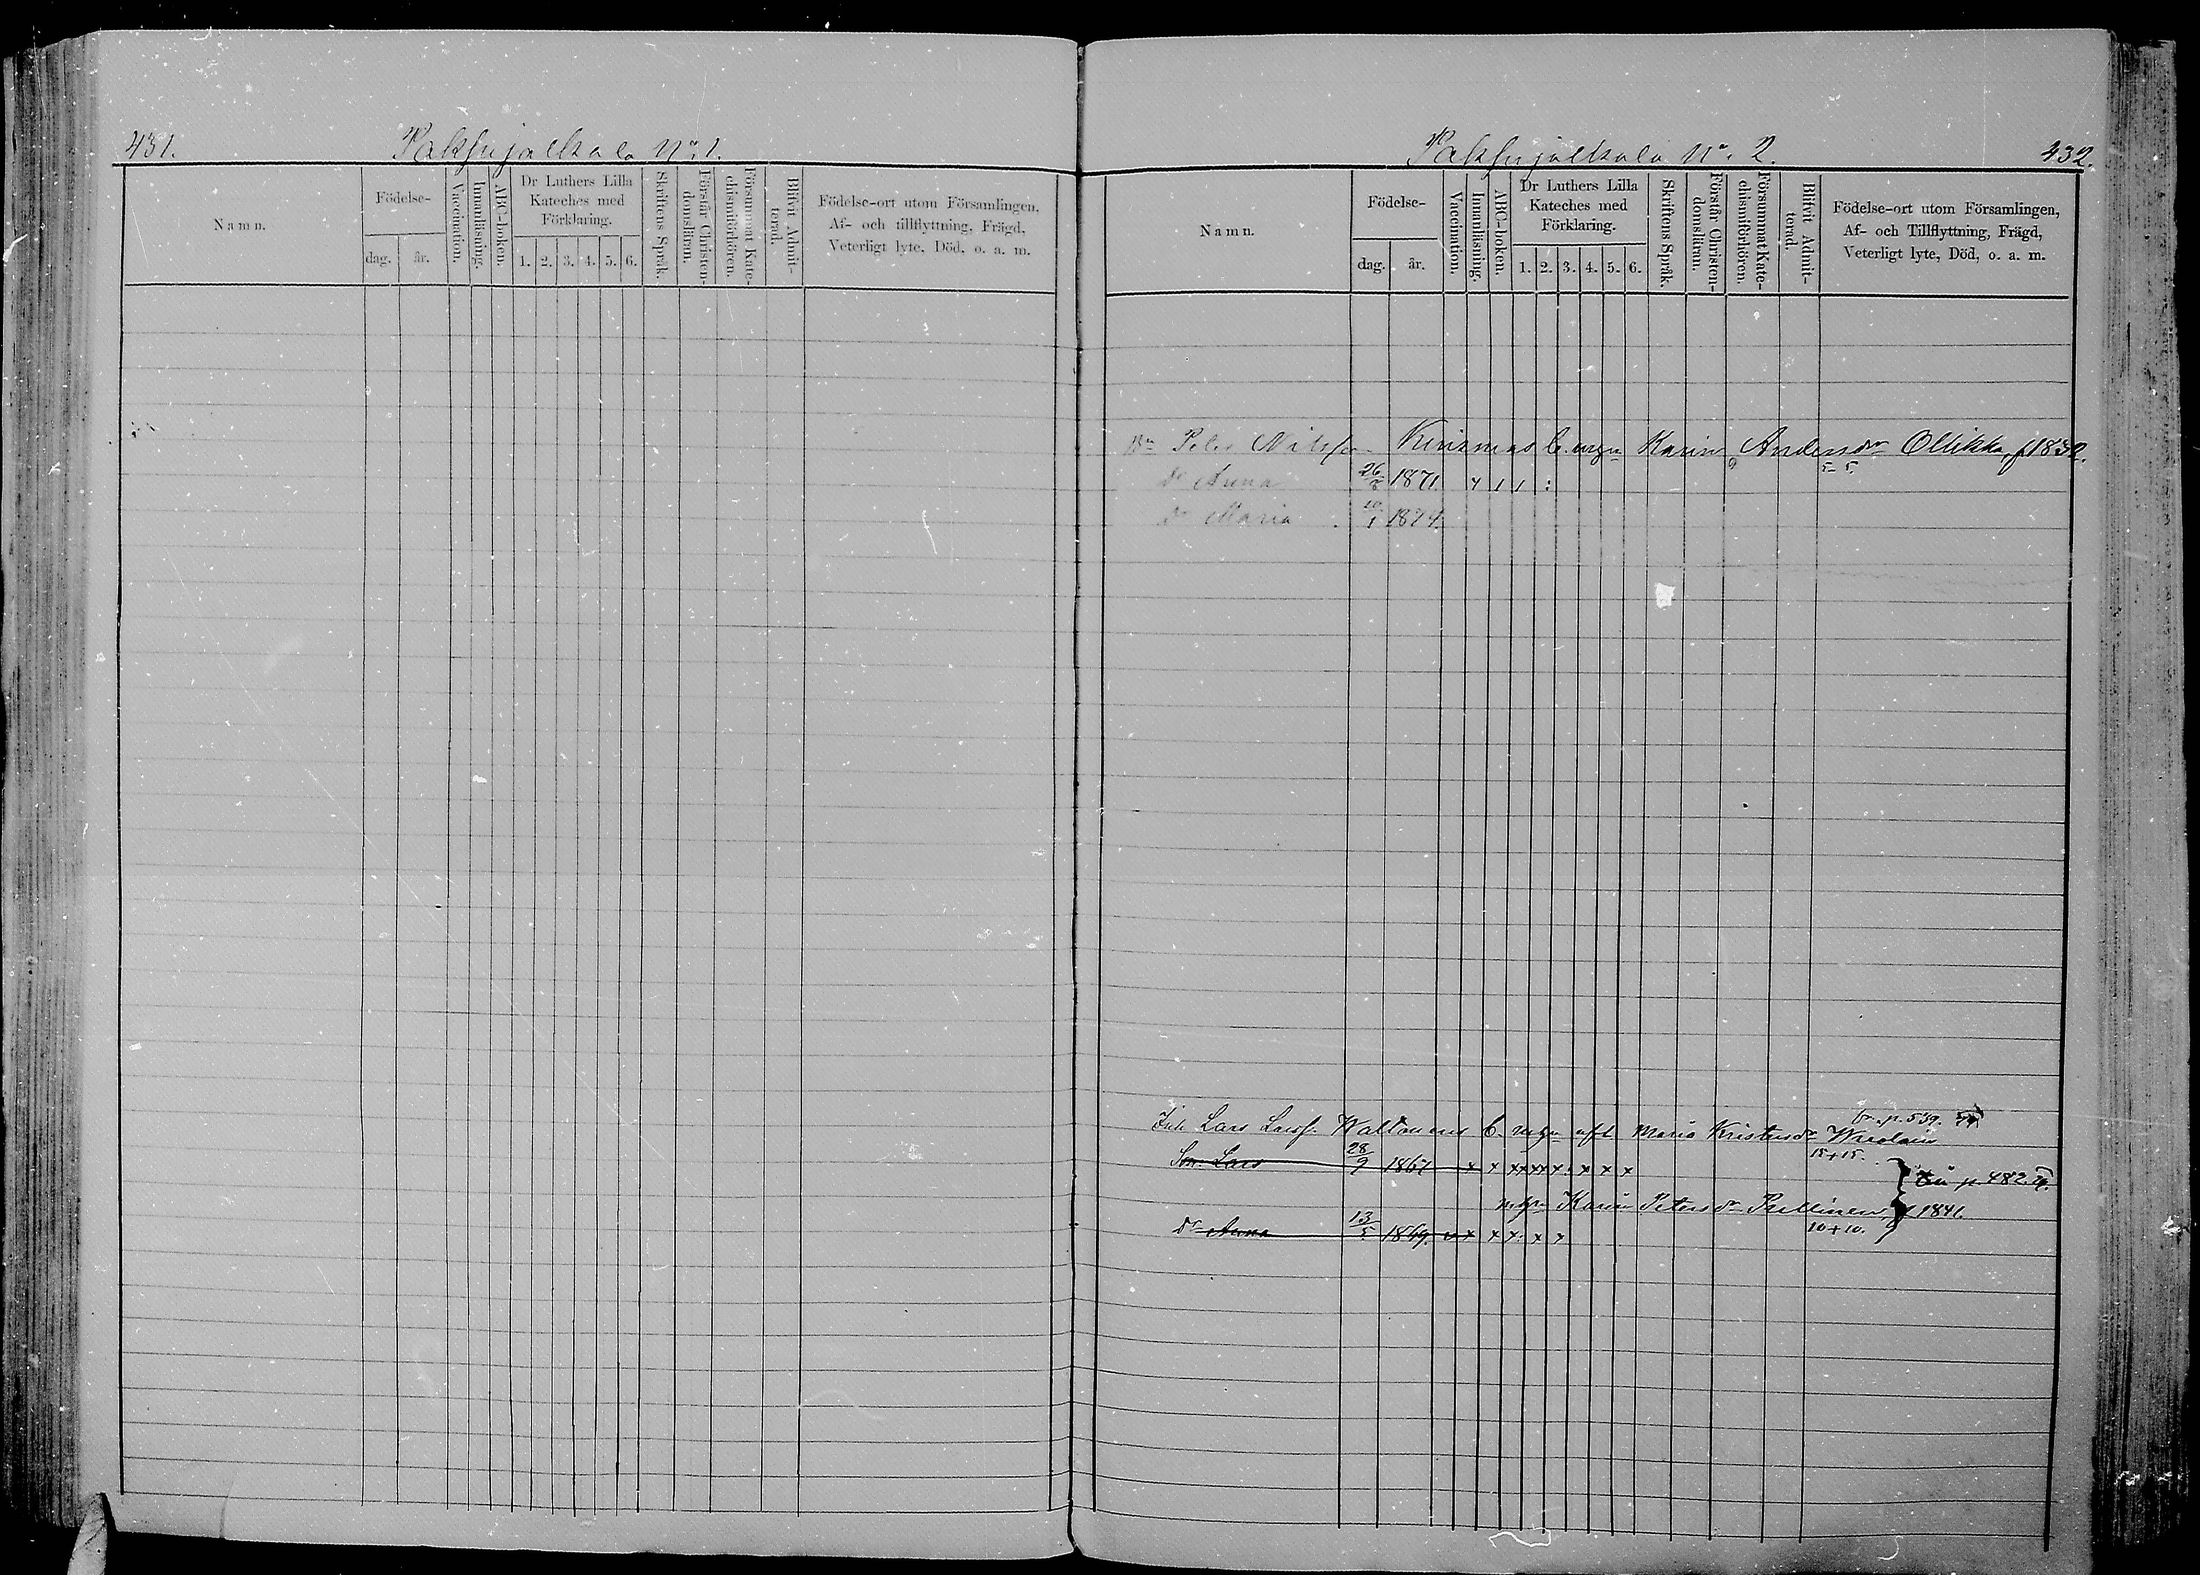 431.
Paksujalkala No 1.
Namn.
Födelse-
dag.
år.
Vaccination.
Innanläsning.
ABC-boken.
Dr Luthers Lilla
Kateches med
Förklaring.
1. 2. 3. 4. 5. 6.
Skriftens Språk.
Förstår Christen-
domsläran.
Försummat Kate-
chismiförhören.
Blifvit Admit-
terad.
Födelse-ort utom Församlingen,
Af- och tillflyttning, Frägd,
Veterligt lyte, Död, o. a. m.
Paksujalkala No. 2.
432.
Namn.
Födelse-
dag.
år.
Vaccination.
Innanläsning.
ABC-boken.
Dr Luthers Lilla
Kateches med
Förklaring.
1. 2. 3. 4. 5. 6.
Skriftens Språk.
Förstår Christen-
domsläran.
Försummat Kate-
chismiförhören.
Blifvit Admit-
terad.
Födelse-ort utom Församlingen,
Af- och Tillflyttning, Frägd,
Veterligt lyte, Död, o. a. m.
Bn Peter Nilsson Karin Andersdr Ollikka, f 1832.
5-5
Dr Anna 26/8 1871.
Dr Maria 10/1 1874.
fr. p. 539.
Lars Larsf. Waltonens b. m hu afl Maria Kristersdr
15+15.
Son Lars 28/9 1867 x x x x x x x x x x
p 482
Karin Petersdr Pellinen f 1841.
10+10.
Dr Anna 13/5 1869. x x x x x